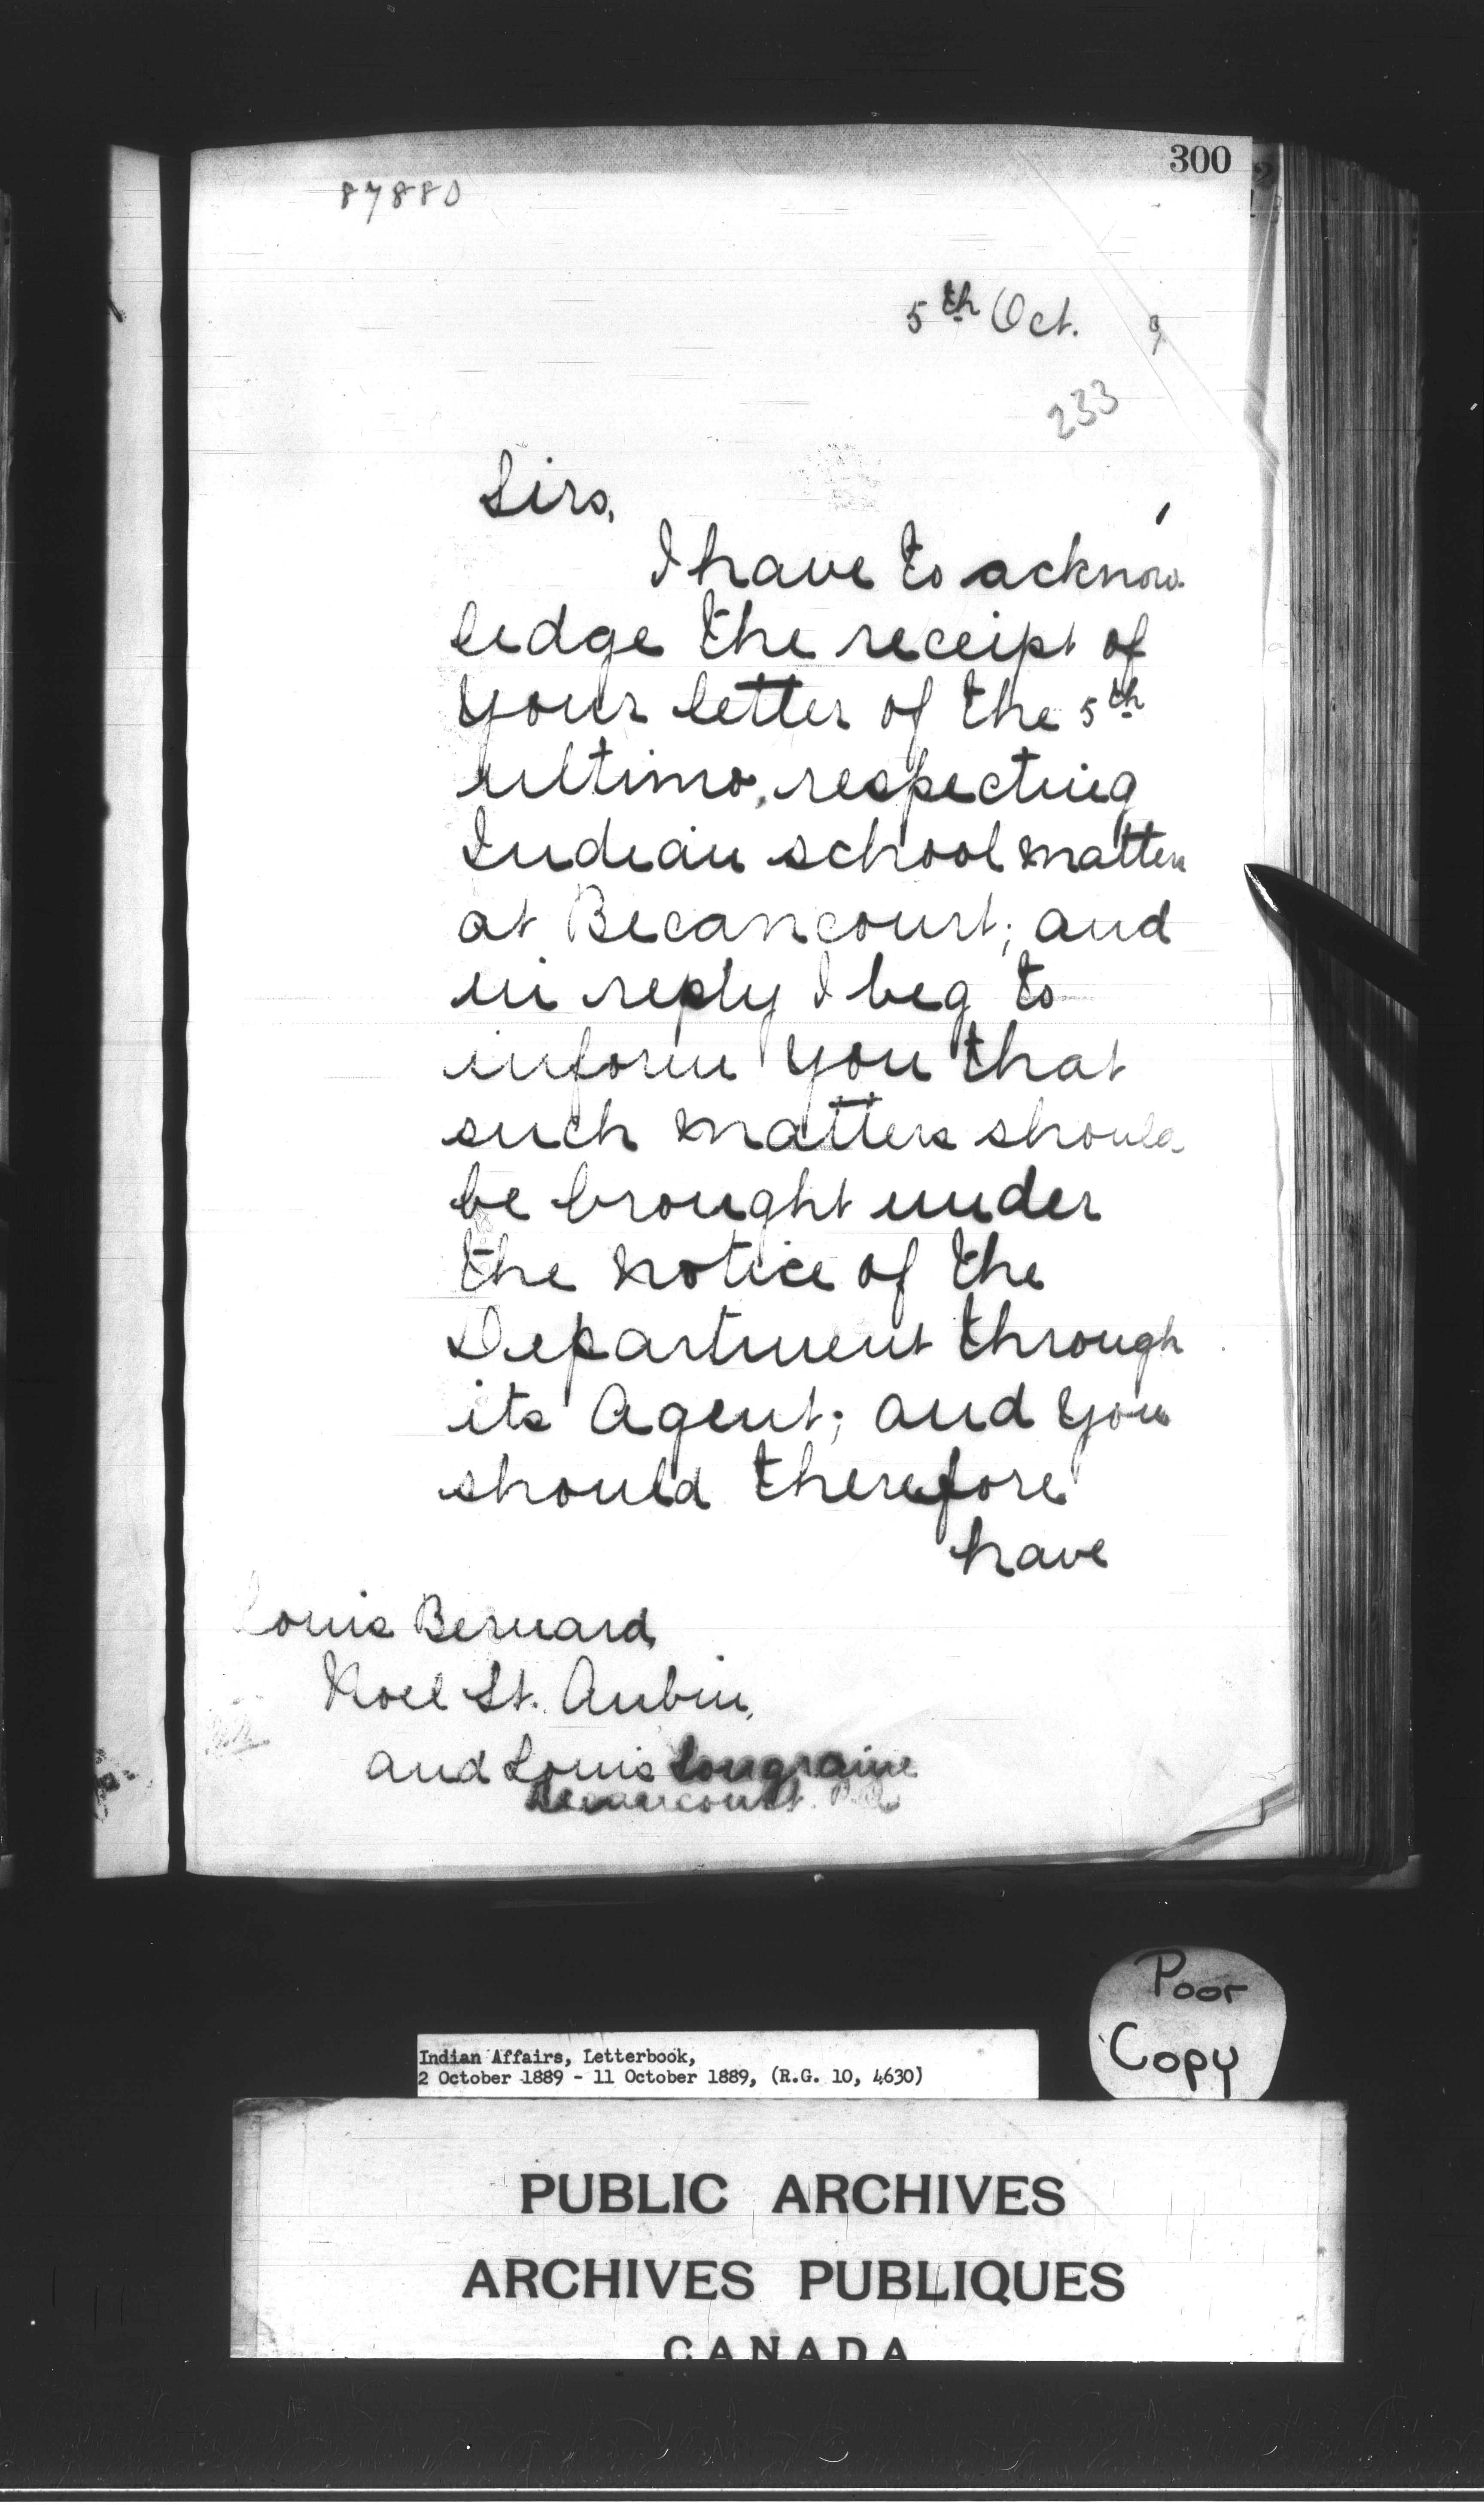 300
87880
5th Oct. 9
233
Sirs,
I have to acknow
ledge the receipt of
your letter of the 5th
ultimo, respecting
Indian school matters
at Becancourt; and
in reply I beg to
inform you that
such matters should
be brought under
the notice of the
Department through
its Agent; and you
should therefore
have
Louis Bernard,
Noel St. Aubin,
and Louis
Becancourt. P.Q.
Poor
Copy
Indian Affairs, Letterbook,
2 October 1889 - 11 October 1889, (R.G. 10, 4630)
PUBLIC ARCHIVES
ARCHIVES PUBLIQUES
CANADA